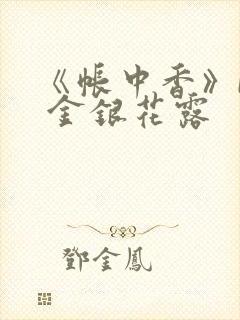 《帳中香》
金銀花露
鄧金鳳